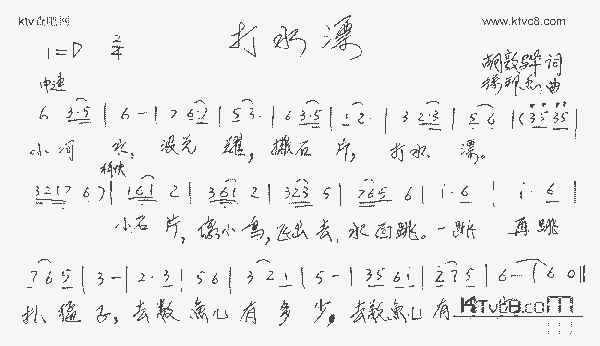 ktv 吧网
www.ktvc8.com
打水漂
1=D 2/4
中速
胡敦骅 词
曲
6 3·5 | 6 — | 7 6·2 | 5 3· | 6 3·5 | 1 2· | 3 2·3 | 5 6 | (35 35 |
小河 水, 波光 耀, 撒石 片, 打水 漂。
稍快
3217 6) | 161 2 | 361 2 | 323 5 | 765 6 | i·6 | i·6 |
小石片, 像小鸟, 飞出去, 水面跳。一跳 再跳
765 | 3— | 2·3 | 56 | 3 21 | 5— | 35 61 | 275 | 6— | 60 ||
扎猛子, 去数鱼儿有多少, 去数鱼儿有
Ktvc8.com